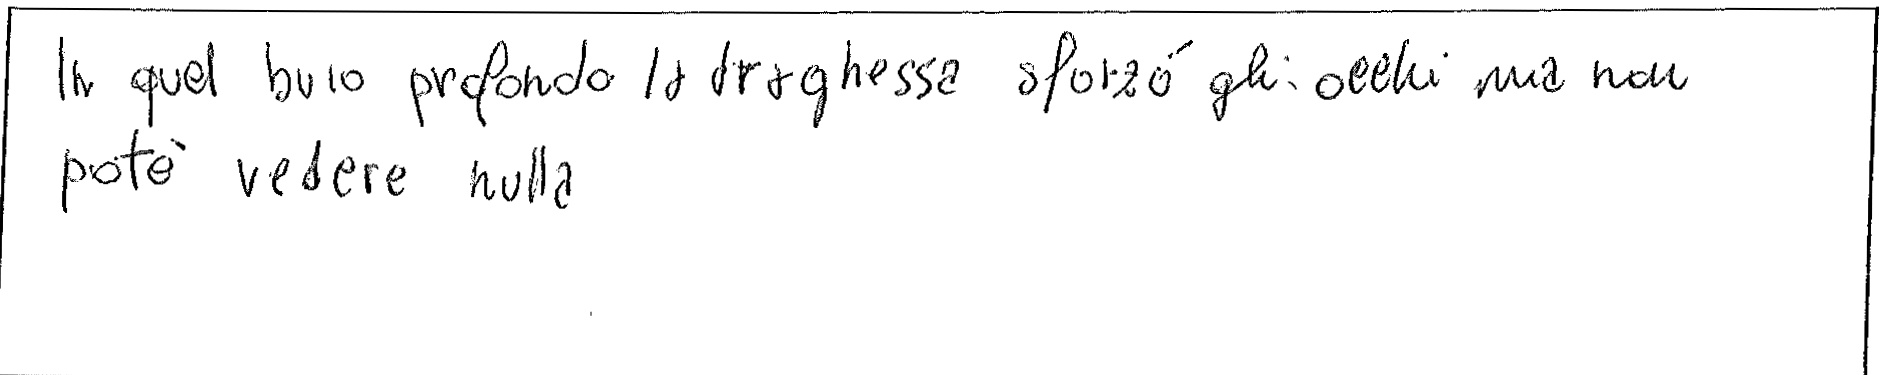 In quel buio profondo la draghessa sforzó gli occhi ma non
potè vedere nulla